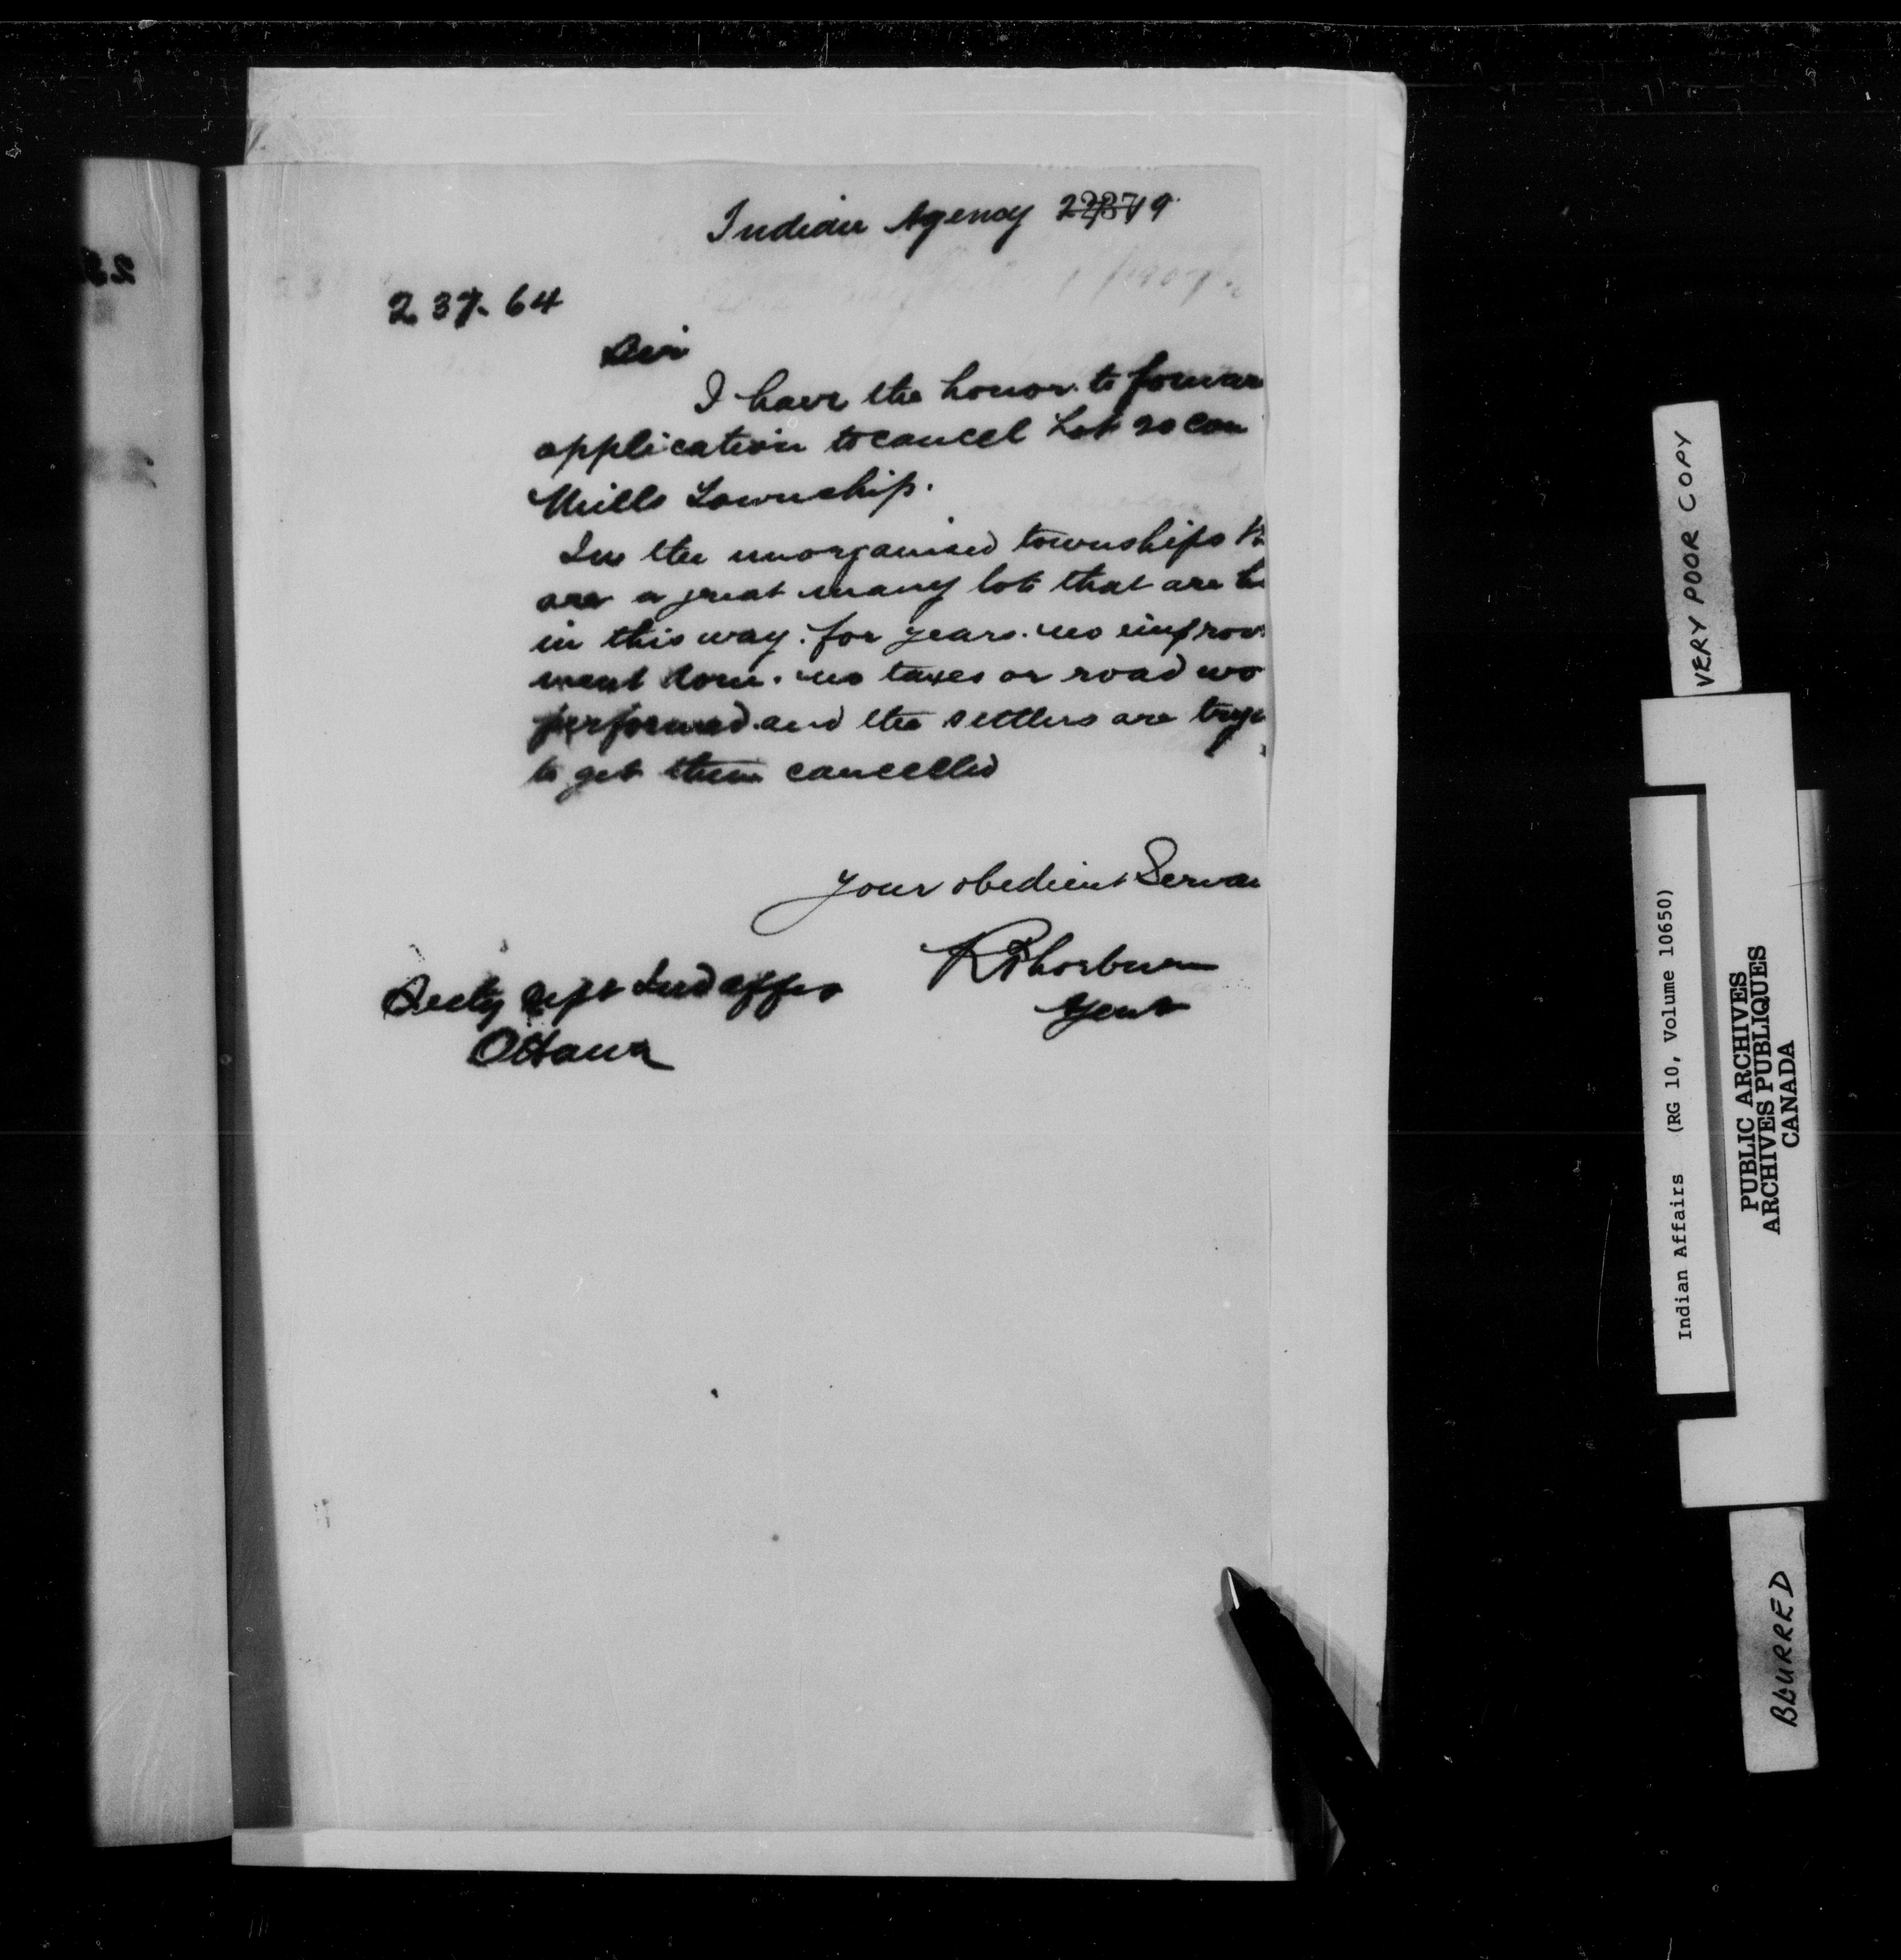 Indian Agency
237-64
Sir
I have the honor to forwar
application to cancel Lot 20 Con
Mills Township.
In the unorganised townships th
are a great many lots that are he
in this way. for years. no improv
ment done. no taxes or road wo
performed and the settlers are tryi
to get them cancelled
Your obedient Servan
RThorburn
Agent
Secty Dept Ind Affrs
Ottawa
VERY POOR COPY
Indian Affairs (RG 10, Volume 10650)
PUBLIC ARCHIVES
ARCHIVES PUBLIQUES
CANADA
BLURRED